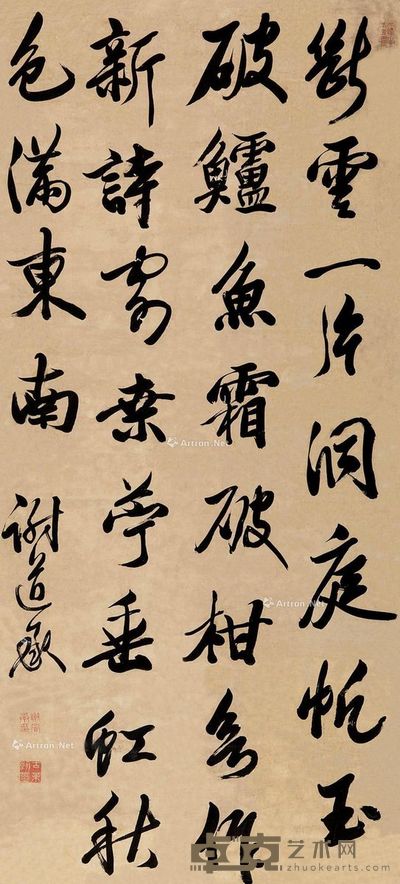 斷雲一片洞庭帆玉
破鱸魚霜破柑好作
新詩寄桑苧垂虹秋
色滿東南
謝道承
Artron.Net
Artron.Net
Artron.Net
卓克艺术网
zhuokearts.com